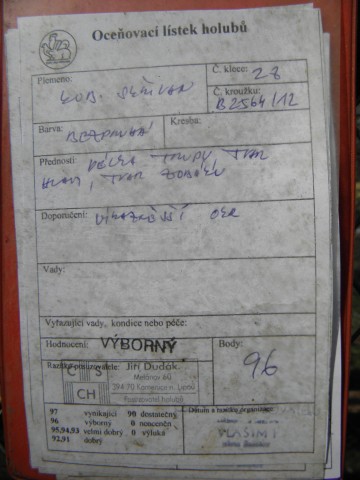 Oceňovací lístek holubů
Plemeno:
KOB. SKŘIVAN
Č. klece: 28
Č. kroužku:
B2564/12
Barva: BEZPRUHÁ
Kresba:
Přednosti: DÉLKA TRUPU, TVAR
HLAVY, TVAR ZOBÁKU
Doporučení: VÝRAZNĚJŠÍ OKR
Vady:
Vyřazující vady, kondice nebo péče:
Hodnocení: VÝBORNÝ
Body:
96
Razítko posuzovatele: Jiří Dudák
C S
CH
394 70 Kamenice n. Lipou
Posuzovatel holubů
97 vynikající 90 dostatečný
96 výborný 0 neoceněn
95,94,93 velmi dobrý 0 výluka
92,91 dobrý
Datum a razítko organizace
VLAŠIM 1